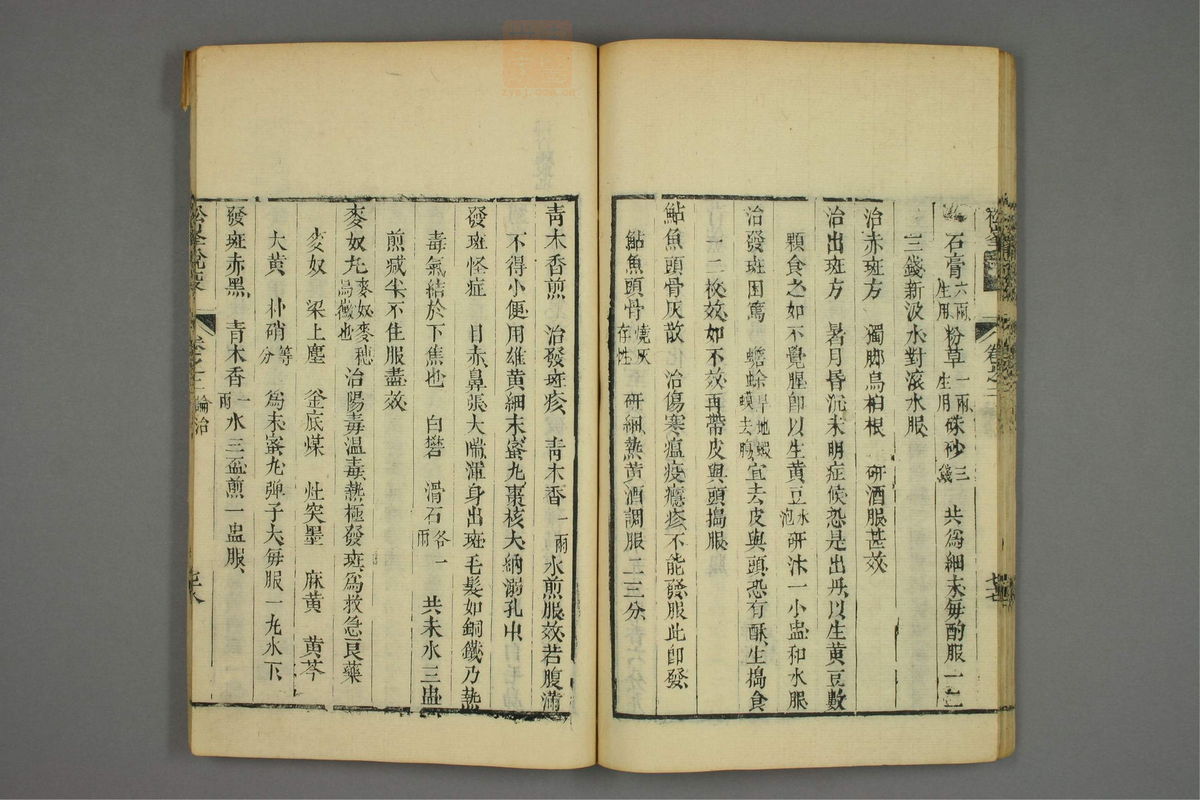 石膏六兩生用粉草一兩生用硃砂三錢　共爲細末每酌服一二
三錢新汲水對滚水服
治赤斑方　獨脚烏桕根　研酒服甚效
治出斑方　暑月昏沉未明症候恐是出丹以生黄豆數
顆食之如不覺腥卽以生黄豆水泡研沫一小盅和水服
治發斑困篤　蟾蜍旱地蝦蟆去腸宜去皮與頭恐有酥生搗食
一二枚效如不效再帶皮與頭搗服
鮎魚頭骨灰散　治傷寒瘟疫癮疹不能發服此卽發
鮎魚頭骨燒灰存性　研細熱黄酒調服二三分
靑木香煎　治發斑疹　靑木香一兩水煎服效若腹滿
不得小便用雄黄細末蜜丸棗核大納溺孔中
發斑怪症　目赤鼻張大喘渾身出斑毛髮如銅鐵乃熱
毒氣結於下焦也　白礬　滑石各一兩　共末水三盅
煎减半不住服盡效
麥奴丸麥奴麥穗烏黴也治陽毒温毒熱極發斑爲救急良藥
麥奴　梁上塵　釜底煤　灶突墨　麻黄　黄芩
大黄　朴硝等分　爲末蜜丸彈子大每服一丸水下
發斑赤黑　靑木香一兩水三盃煎一盅服
卷之二　論治